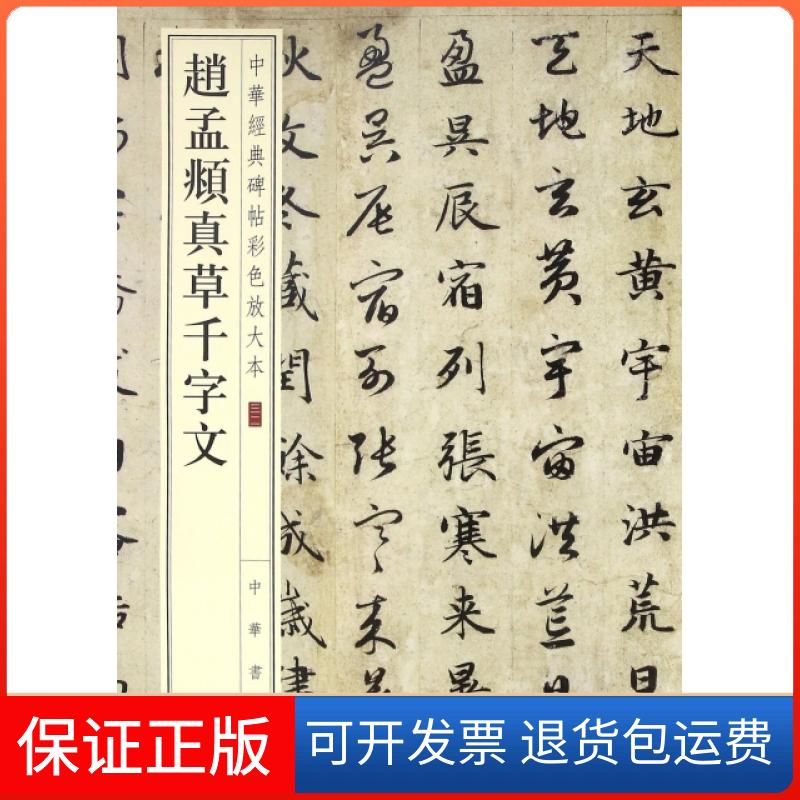 天地玄黃宇宙洪荒日
天地玄黃宇宙洪荒日
盈昃辰宿列張寒来暑
盈昃辰宿列張寒来暑
秋收冬藏閏餘成歲律
中華經典碑帖彩色放大本
中華書
趙孟頫真草千字文
保证正品
可开发票 退货包运费